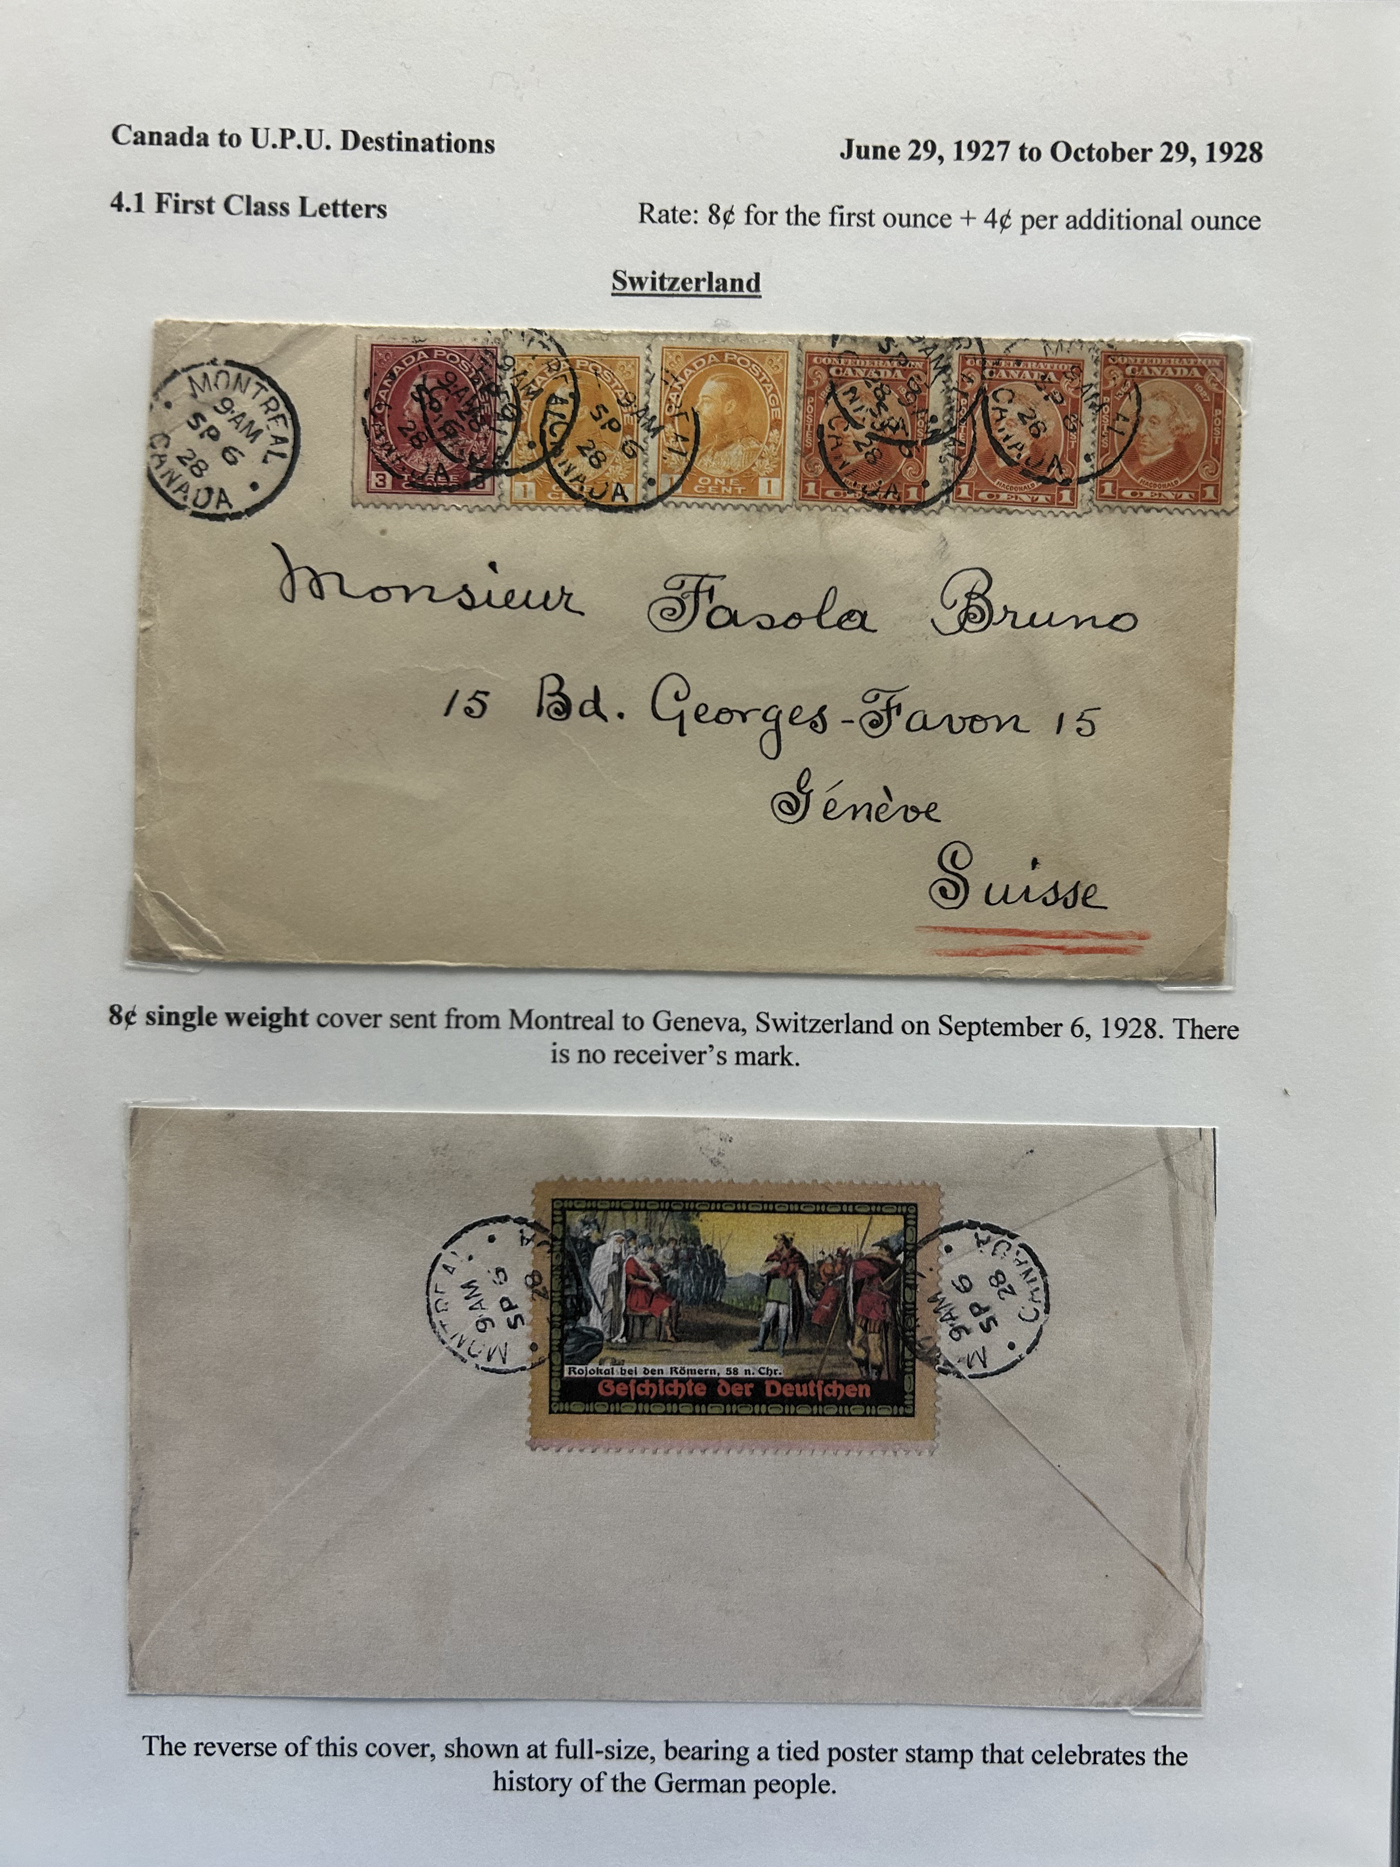 Canada to U.P.U. Destinations
June 29, 1927 to October 29, 1928
4.1 First Class Letters
Rate: 8¢ for the first ounce + 4¢ per additional ounce
Switzerland
MONTREAL
9 AM
SP 6
28
CANADA
CANADA POSTAGE
3
9 AM
SP 6
28
CANADA
1
CANADA POSTAGE
1 ONE CENT 1
CONFEDERATION
CANADA
1 1
CANADA
1 CENT 1
CONFEDERATION
CANADA
MACDONALD
1 CENT 1
Monsieur Fasola Bruno
15 Bd. Georges-Favon 15
Génève
Suisse
8¢ single weight cover sent from Montreal to Geneva, Switzerland on September 6, 1928. There
is no receiver's mark.
9 AM
SP 6
28
Rojokal bei den Römern, 58 n. Chr.
Geſchichte der Deutſchen
9 AM
SP 6
28
CANADA
The reverse of this cover, shown at full-size, bearing a tied poster stamp that celebrates the
history of the German people.